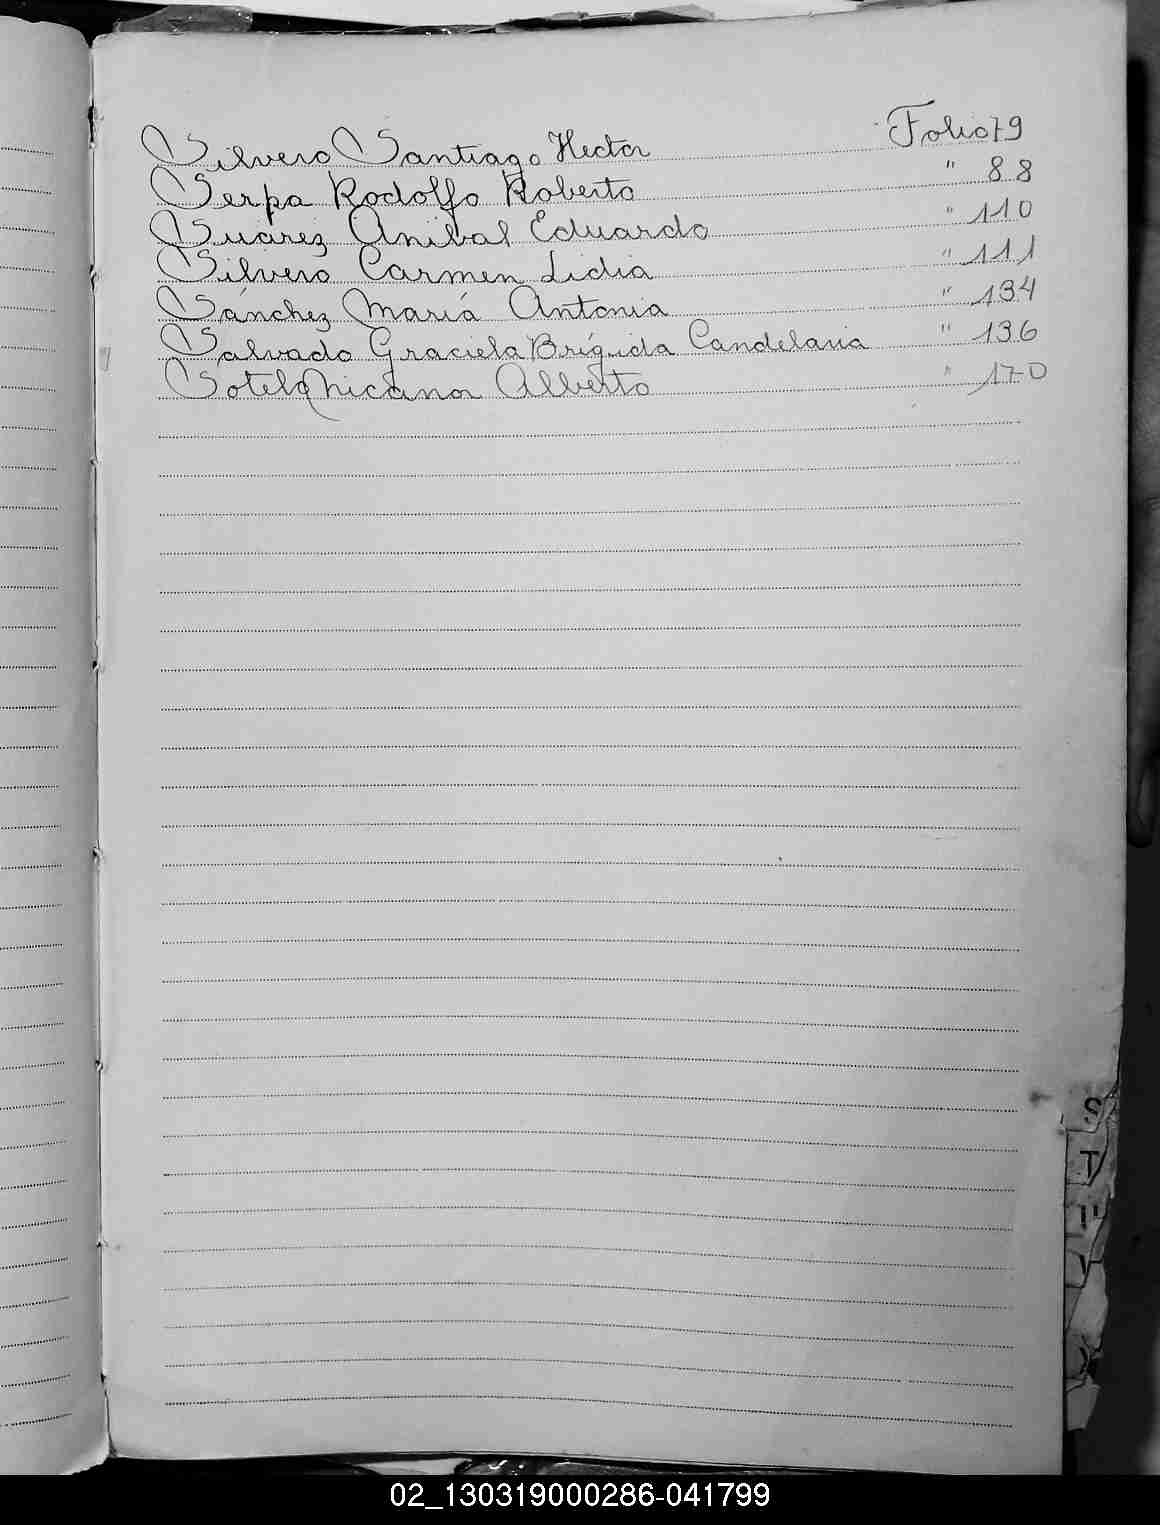 Silvero Santiago Hector Folio 79
Serpa Rodolfo Roberto " 88
Suárez Anibal Eduardo " 110
Silvero Carmen Lidia " 111
Sánchez María Antonia " 134
Salvado Graciela Brígida Candelaria " 136
Sotelo Nicanor Alberto " 170
S
T
U
V
02_130319000286-041799